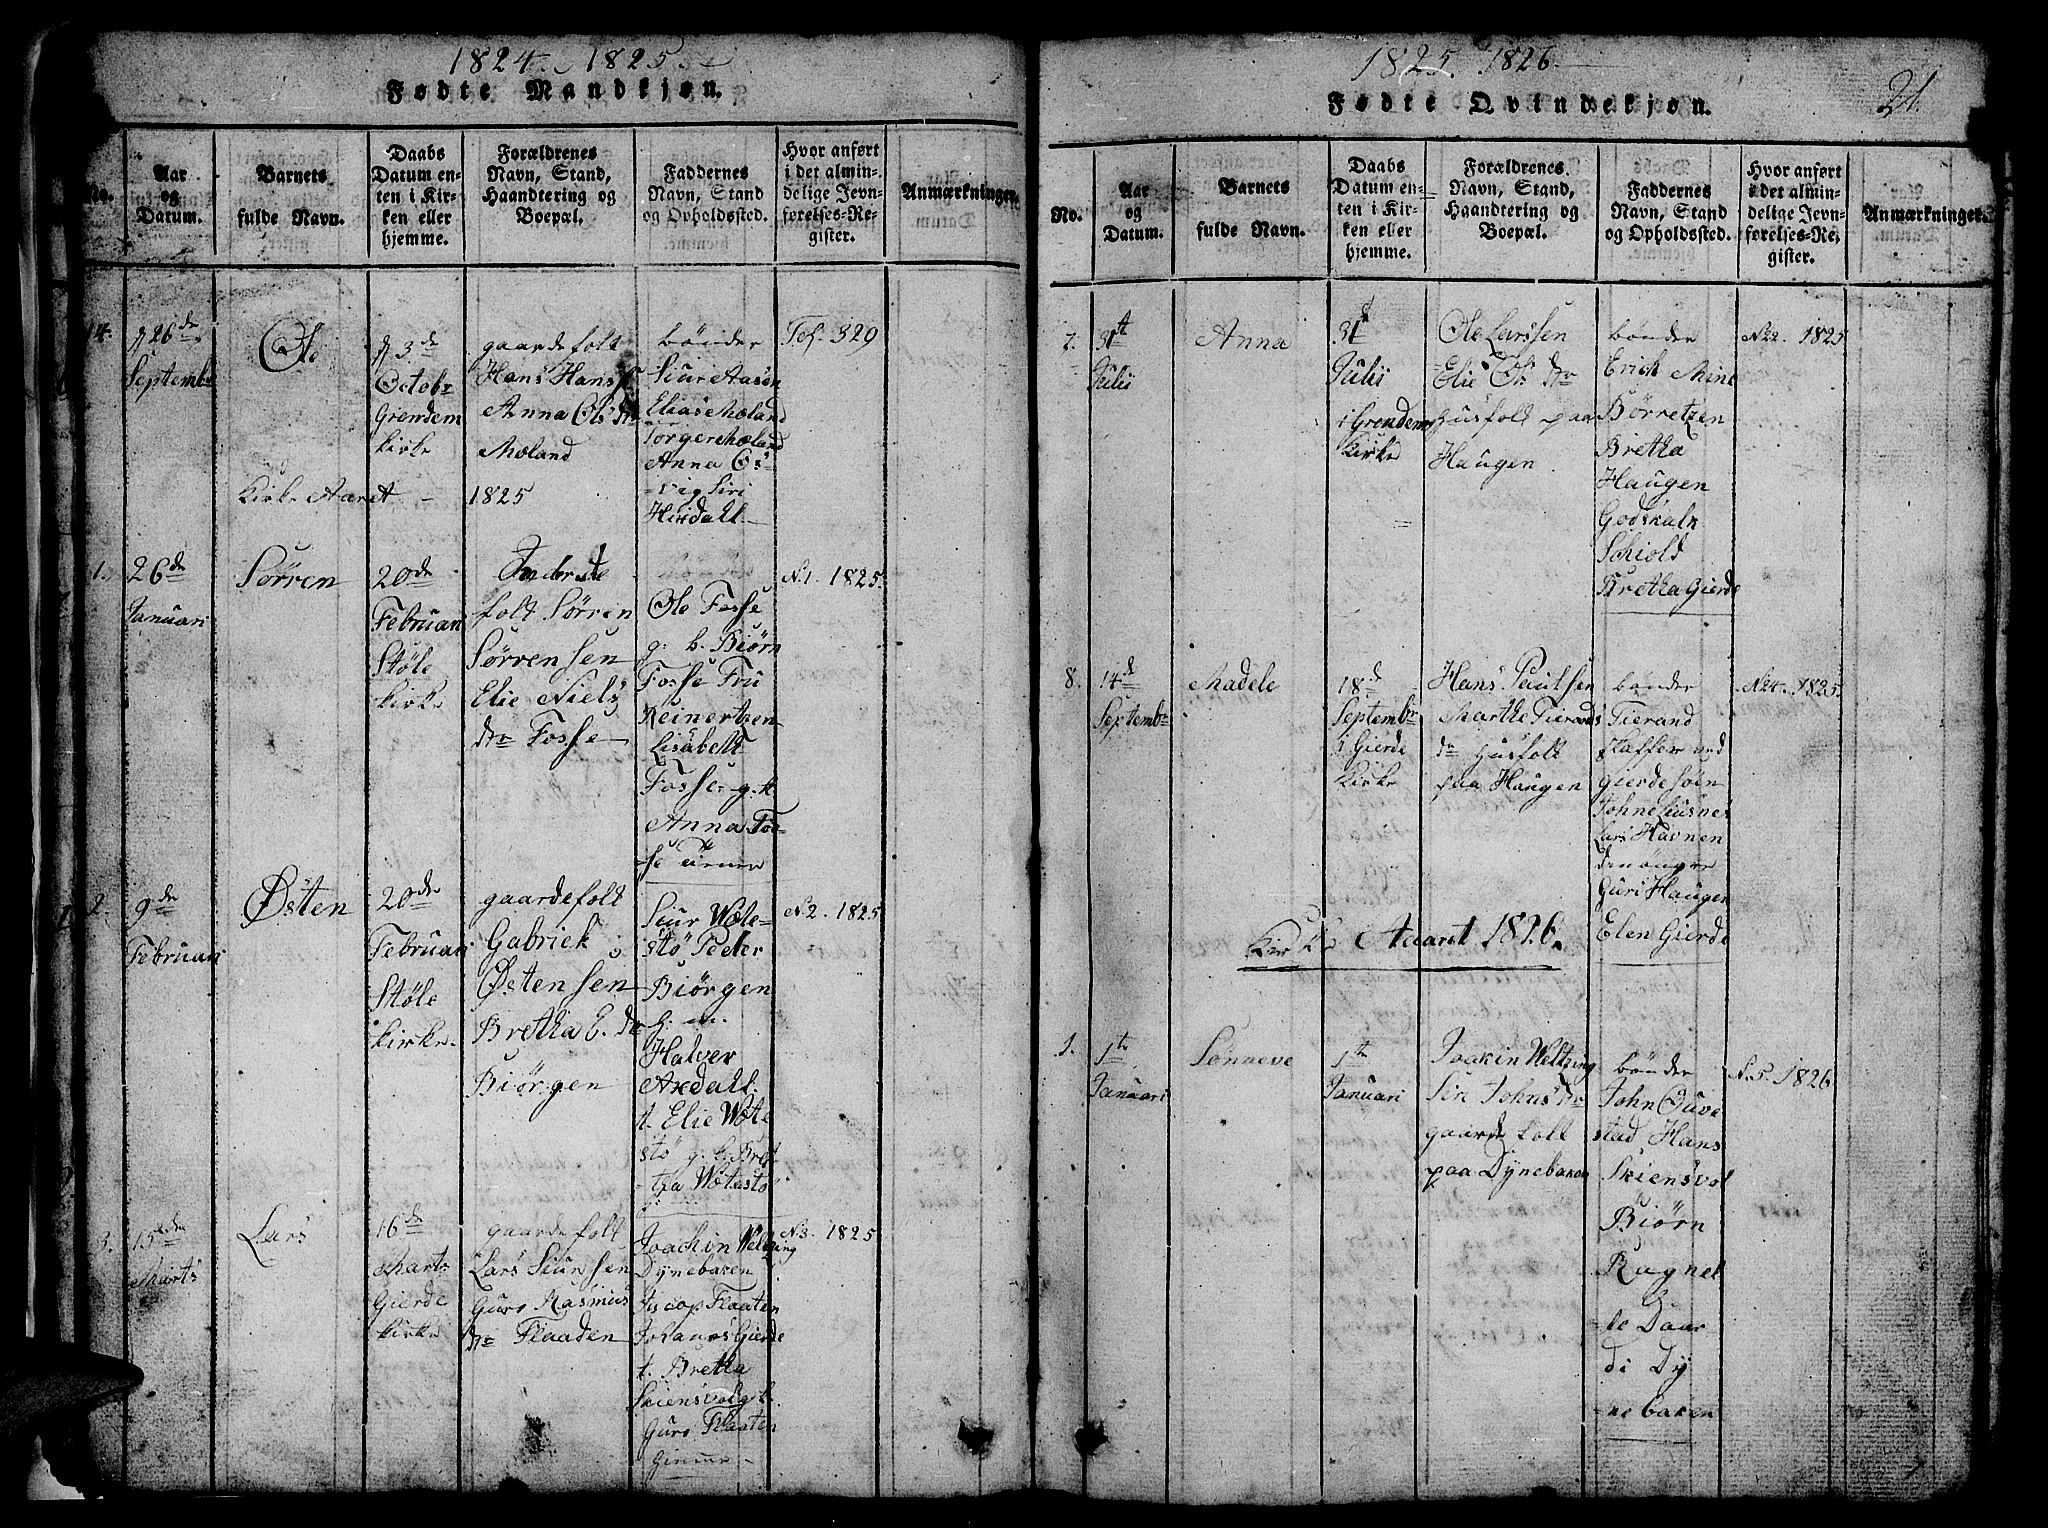 1824. 1825.
Fødte Mandkjøn.
No.
Aar
og
Datum.
Barnets
fulde Navn.
Daabs
Datum en-
ten i Kir-
ken eller
hjemme.
Forældrenes
Navn, Stand,
Haandtering og
Boepæl.
Faddernes
Navn, Stand
og Opholdssted.
Hvor anført
i det almin-
delige Jevn-
førelses-Re-
gister.
Anmærkninger.
14.
26de
Septembr
Ole
3de
Octobr
Grendem
kirke
gaardefolk
Hans Hanss
Anna Ols dr
Mæland
bønder
Siur Aasen
Elias Mæland
Torger Mæland
Anna
Siri
Hirdall
Tof. 329
Kirke Aaret - 1825
1.
26de
Januari
Sørren
20de
Februari
Støle
kirke
Inderste
folk Sørren
Sørrensen
Elie Niels
dr Fosse
Ole Fosse
g. k. Biørn
Fosse Fru
Reinertzen
Lisabeth
Fosse g. k
Anna Fos-
se
N.1. 1825.
2.
9de
Februari
Østen
20de
Februari
Støle
kirke.
gaardefolk
Gabriel
Østensen
Bretha E. dr
Biørgen
Siur Wæte-
stø Peder
Biørgen
g. m.
Halver
Axdall
t. Elie Wæte
stø g. k. Bret-
ha Wætestø
N.2. 1825
3.
15de
Marts
Lars
16de
Marts
Gierde
kirke
gaardefolk
Lars Siursen
Guro Rasmus
dr Flaaden
Joachin Weltzing
Dynebaken
Jiscop Flaaten
Johanes Gierde
t. Bretha
Skiensvol g. k.
Guro Flaaten
N.3. 1825
1825 1826
21.
Fødte Qvindekjøn.
No.
Aar
og
Datum.
Barnets
fulde Navn.
Daabs
Datum en-
ten i Kir-
ken eller
hjemme.
Forældrenes
Navn, Stand,
Haandtering og
Boepæl.
Faddernes
Navn, Stand
og Opholdssted.
Hvor anført
i det almin-
delige Jevn-
førelses-Re-
gister.
Anmærkninger.
7.
31t
Julii
Anna
31t
Julii
i Grendem
Kirke
Ole Larssen
Elie Ols dr
Husfolk paa
Haugen
bønder
Erich Mint
Børretzen
Bretha
Haugen
Godskalk
Schiold
Bretha Gierde
N22. 1825
8.
14d
Septembr
Madele
18d
Septembr
i Gierde
Kirke
Hans Paulsen
Marthe Tierands
dr Husfolk
paa Haugen
bønder
Tierand
Gierdesøen
John Husnes
Lars Havnen
den ongre
Guri Haugen
Elen Gierde
N24. 1825.
Kirke Aaret 1826.
1.
1te
Januari
Sønneve
1te
Januari
Joakin Weltzing
Siri Johns dr
gaarde folk
paa Dynebaken
bønder
John Duve
stad Hans
Skiensvol
Biørn
Rugnel
-le Daar
di Dy
nebaken
N.5. 1826